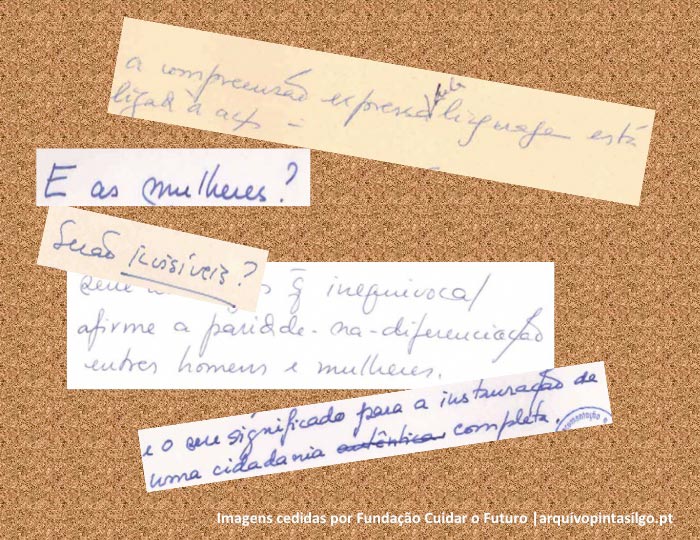 a compreensão expressa pela linguagem está
ligada à acção –
E as mulheres?
Serão invisíveis?
q̄ inequivocal
afirme a paridade-na-diferenciação
entres homens e mulheres.
e o seu significado para a instauração de
uma cidadania autêntica completa.
Imagens cedidas por Fundação Cuidar o Futuro |arquivopintasilgo.pt